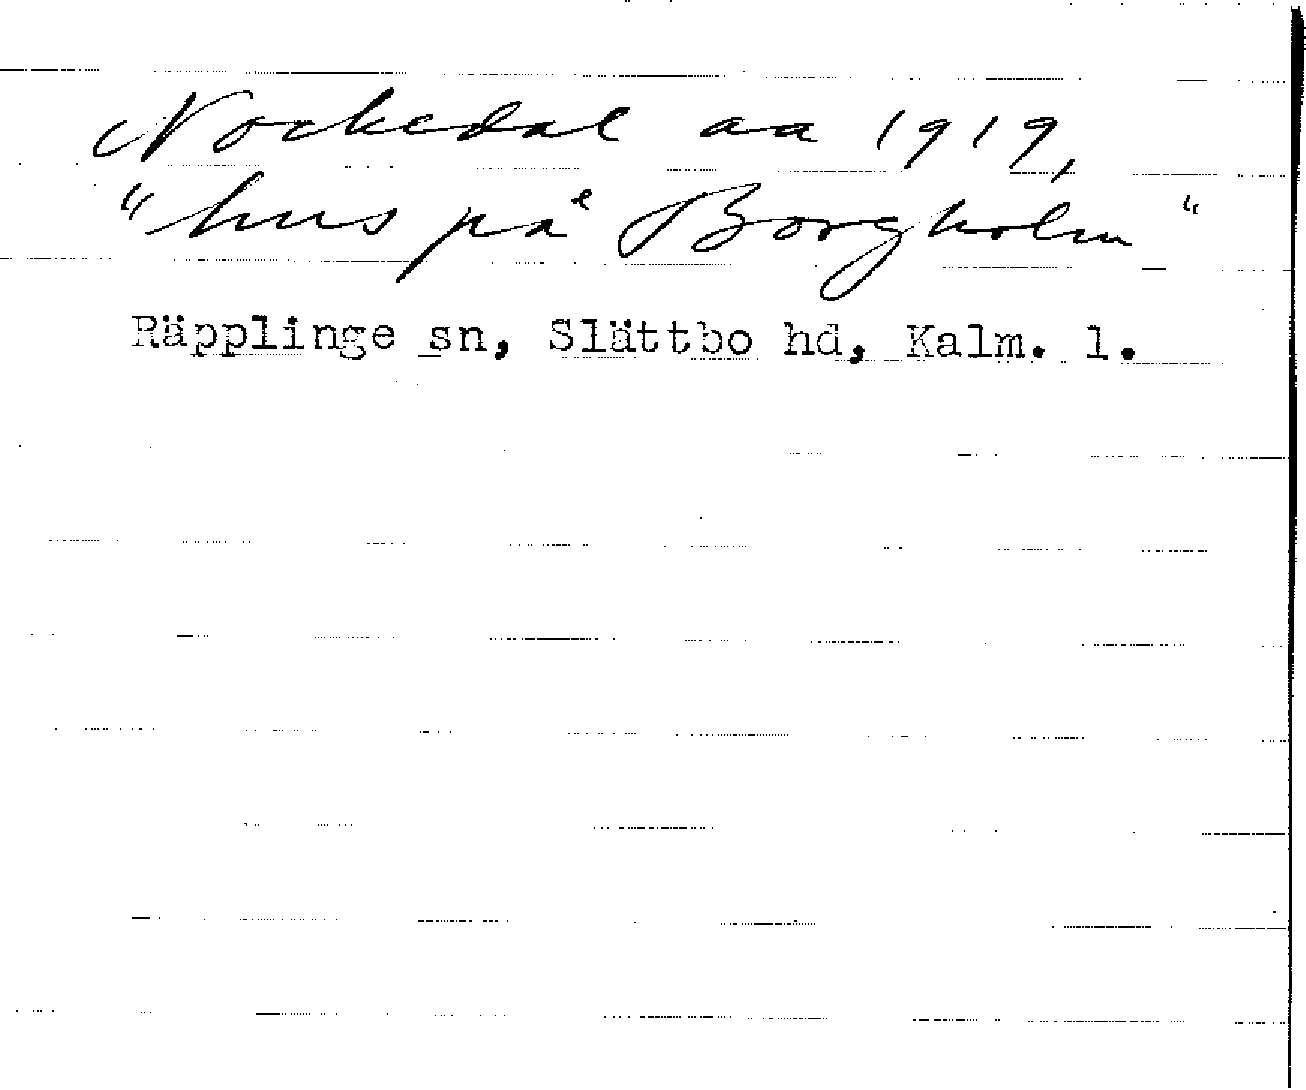 Nockedal aa 1919,
"hus på Borgholm"
Räpplinge sn, Slättbo hd, Kalm. l.